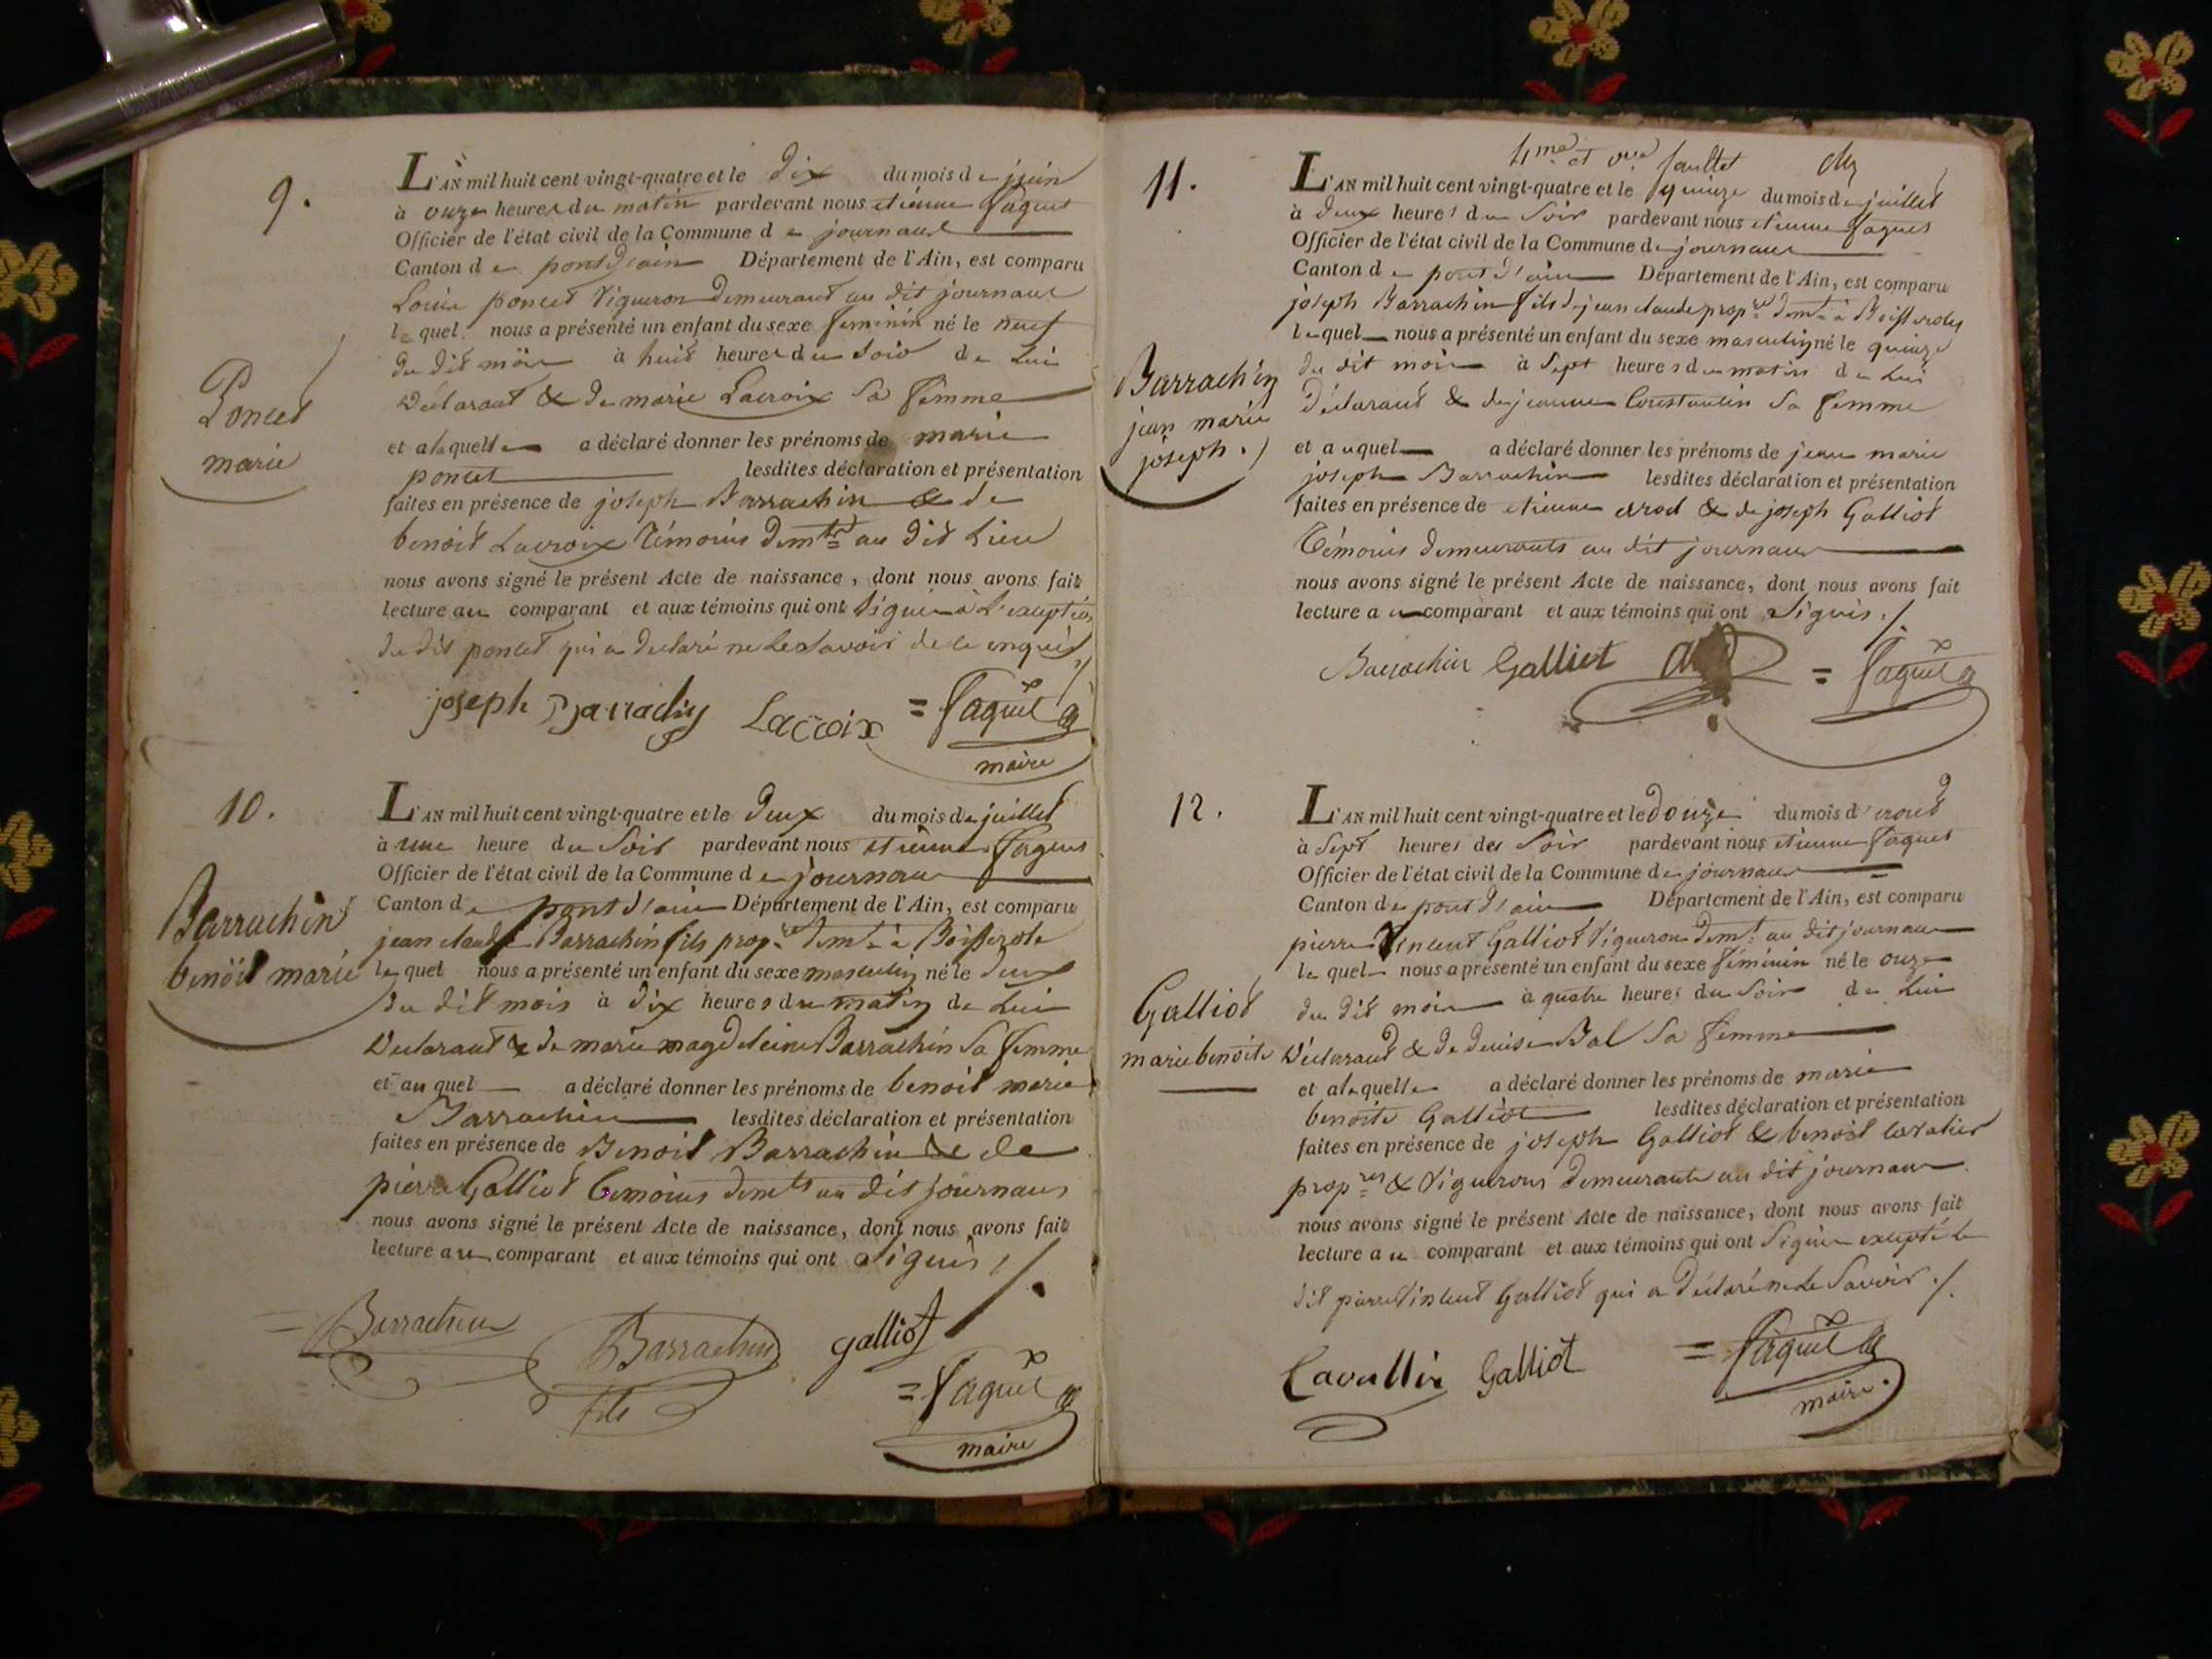 9.
L'AN mil huit cent vingt-quatre et le dix du mois de juin
à onze heures du matin pardevant nous etienne faguet
Officier de l'état civil de la Commune de journans
Canton de pontd'ain Département de l'Ain, est comparu
Louis poncet Vigneron demeurant au dit journans
lequel nous a présenté un enfant du sexe feminin né le neuf
du dit mois à huit heures du soir de Lui
Déclarant & de marie Lacroix Sa femme
Poncet
marie
et a laquelle a déclaré donner les prénoms de marie
poncet lesdites déclaration et présentation
faites en présence de joseph Barrachin & de
benoit Lacroix Témoins demts au dit Lieu
nous avons signé le présent Acte de naissance, dont nous avons fait
lecture au comparant et aux témoins qui ont signé à L'exception
du dit poncet qui a declaré ne Le Savoir de ce enquis
joseph Barrachin Lacroix = faguet
maire
10.
L'AN mil huit cent vingt-quatre et le deux du mois de juillet
à une heure du Soir pardevant nous etienne faguet
Officier de l'état civil de la Commune de journans
Canton de pont d'ain Département de l'Ain, est comparu
jean claude Barrachin fils propre demt à Boisserole
Barrachin
benoit marie
lequel nous a présenté un enfant du sexe masculin né le deux
du dit mois à dix heures du matin de Lui
Declarant & de marie magdeleine Barrachin Sa femme
et au quel a déclaré donner les prénoms de benoit marie
Barrachin lesdites déclaration et présentation
faites en présence de Benoit Barrachin & de
pierre Galliot témoins demts au dit journans
nous avons signé le présent Acte de naissance, dont nous avons fait
lecture au comparant et aux témoins qui ont Signés ./.
= Barrachin Barrachin galliot
fils
= faguet
maire
11.
L'AN mil huit cent vingt-quatre et le quinze du mois de juillet
à deux heures du Soir pardevant nous etienne faguet
Officier de l'état civil de la Commune de journans
Canton de pont d'ain Département de l'Ain, est comparu
joseph Barrachin fils de jean claude propre demt à Boisseroles
lequel nous a présenté un enfant du sexe masculin né le quinze
du dit mois à Sept heures du matin de Lui
Déclarant & de jeanne Constantin Sa femme
Barrachin
jean marie
joseph.
et auquel a déclaré donner les prénoms de jean marie
joseph Barrachin lesdites déclaration et présentation
faites en présence de etienne & de joseph Galliot
Témoins demeurants au dit journans
nous avons signé le présent Acte de naissance, dont nous avons fait
lecture au comparant et aux témoins qui ont Signés ./.
Barrachin Galliot = faguet
12.
L'AN mil huit cent vingt-quatre et le douze du mois d'aout
à Sept heures du Soir pardevant nous etienne faguet
Officier de l'état civil de la Commune de journans
Canton de pont d'ain Département de l'Ain, est comparu
pierre Vincent Galliot Vigneron demt au dit journans
lequel nous a présenté un enfant du sexe féminin né le onze
du dit mois à quatre heures du Soir de Lui
Déclarant & de denise Bal Sa femme
Galliot
marie benoite
et alaquelle a déclaré donner les prénoms de marie
benoite Galliot lesdites déclaration et présentation
faites en présence de joseph Galliot & benoit
propres & Vignerons demeurants au dit journans
nous avons signé le présent Acte de naissance, dont nous avons fait
lecture au comparant et aux témoins qui ont Signés excepté le
dit pierre Vincent Galliot qui a Déclaré ne Le Savoir ./.
Cavallier Galliot = faguet
maire.